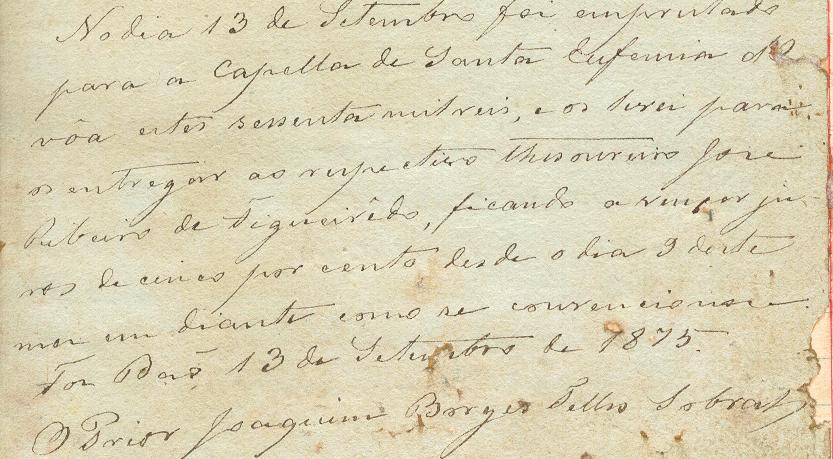 No dia 13 de Setembro foi emprestado
para a Capella de Santa Eufemia de
vôa estes sessenta mil reis, e os tirei para
os entregar ao respectivo thesoureiro José
Ribeiro de Figueirêdo, ficando a vencer ju-
ros de cinco por cento desde o dia 9 deste
mez em diante como se convencionou.
13 de Setembro de 1875.
O Prior Joaquim Borges Telles Sobral